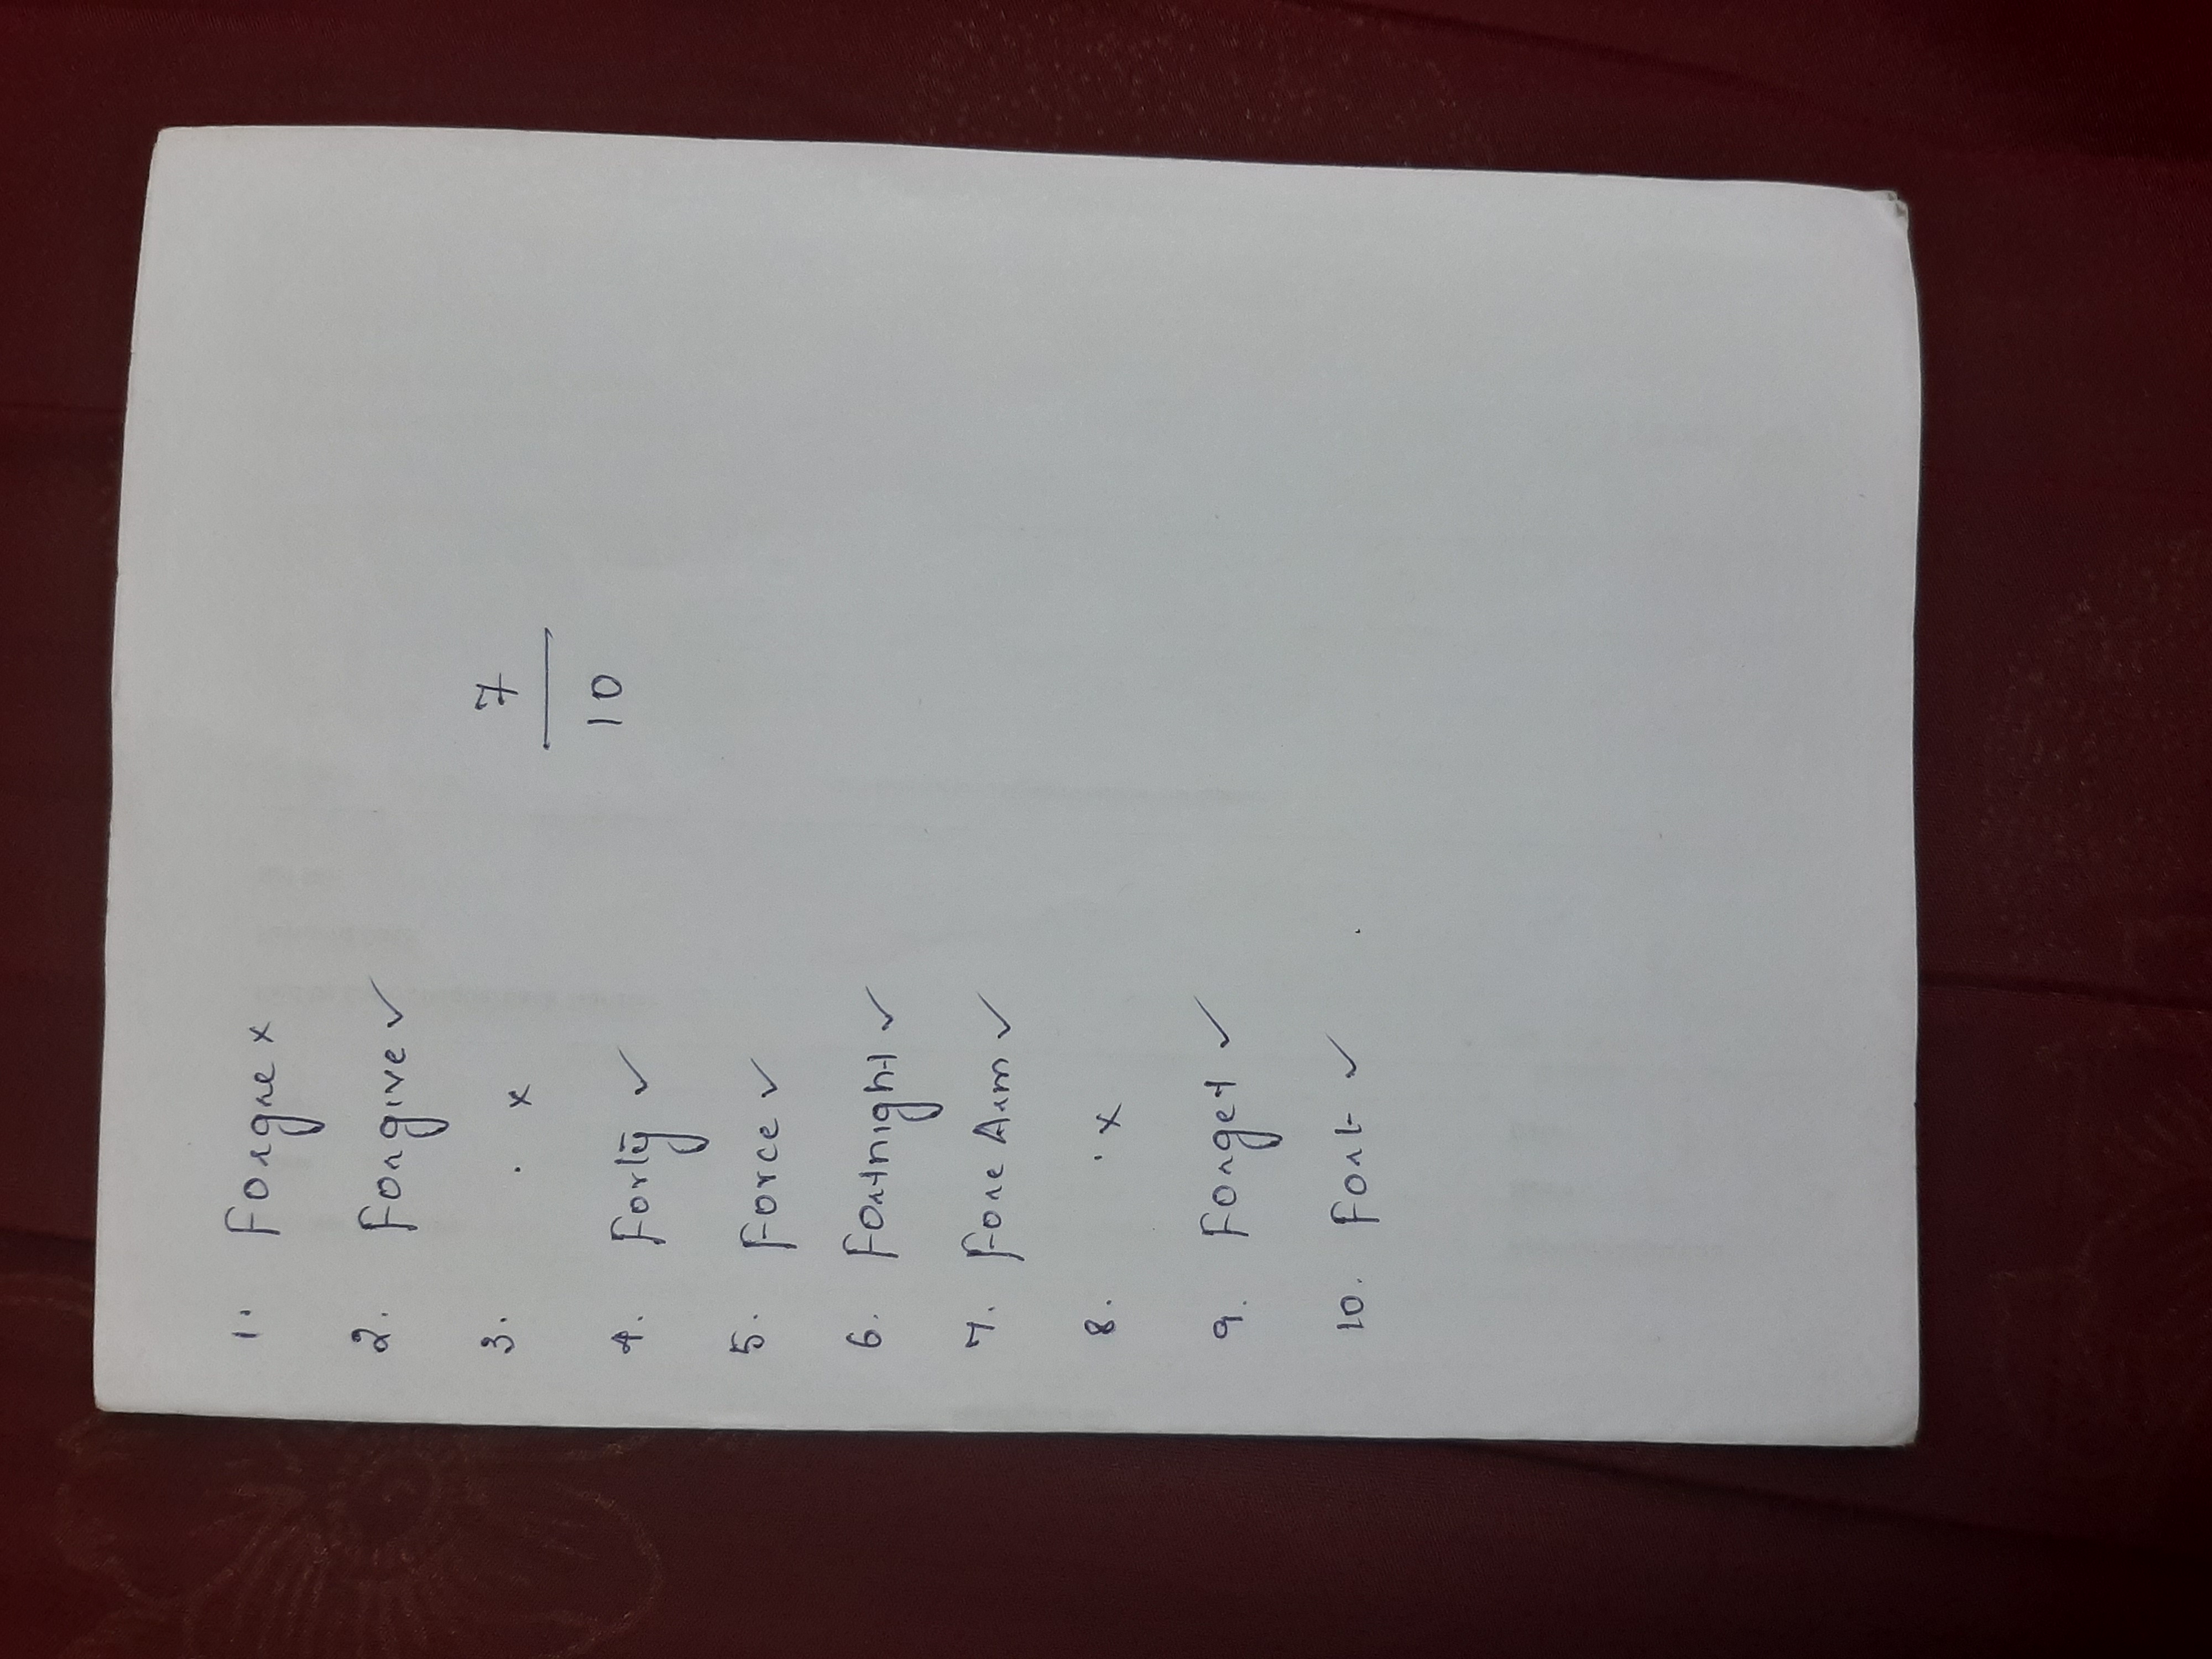 1. Forgre x
2. Forgive ✓
3. . x
7
10
4. Forty ✓
5. Force ✓
6. Fortnight ✓
7. Fore Arm ✓
8. . x
9. Forget ✓
10. Fort ✓ .